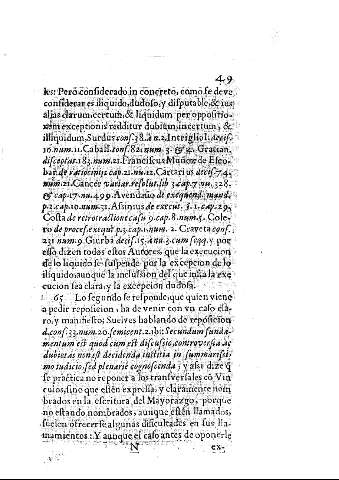 49
les: Peró considerado in concreto, como se deve
considerar es iliquido, dudoso, y disputable, & ius
aliàs clarum, certum, & liquidum per oppositio-
nem exceptionis redditur dubium, incertum, &
illiquidum. Surdus cons. 38. n. 2. Intrigliol. decis.
10. num. 11. Caball. cons. 82. num. 3. & 4. Gratian.
disceptat. 183. num. 21. Franciscus Muñoz de Esco-
bar de ratiocinijs cap. 21. nu. 12. Cartarius decis. 74.
num. 21. Cancer variar. resolut. lib 3. cap. 7. nu. 328.
& cap. 17. nu. 499. Avendaño de exequend. mand.
p. 2. cap. 10. num. 31. Assinius de execut. §. 1. cap. 29.
Costa de retrotractione casu 9. cap. 8. num. 5. Cole-
ro de process. exequt p. 3. cap. 1. num. 2. Craveta cons.
231 num. 9. Giurba decis. 15. anu. 3. cum seqq. y por
esso dizen todas estos Autores, que la execucion
de lo liquido se suspende por la excepcion de lo
iliquido, aunque la inclusion del que insta la exe
cucion sea clara, y la excepcion dudosa.
65 Lo segundo se responde, que quien viene
a pedir reposicion, ha de venir con vn caso cla-
ro, y manifiesto; Suelves hablando de reposicion
d. cons. 33. num. 20. semicent. 2. ibi: Secundum funda-
mentum est quod cum est discussio, controversia ac
dubietas non est decidenda iustitia in summarissi-
mo iudicio, sed plenariè cognoscenda; y assi dize q
se práctica no reponer a los transversales cõ Vin
culos, sino que estèn expressa, y claramente nom
brados en la escritura del Mayorazgo, porque
no estando nombrados, aunque estèn llamados,
suelen ofrecerse algunas dificultades en sus lla-
mamientos: Y aunque el caso antes de oponerle
N ex-